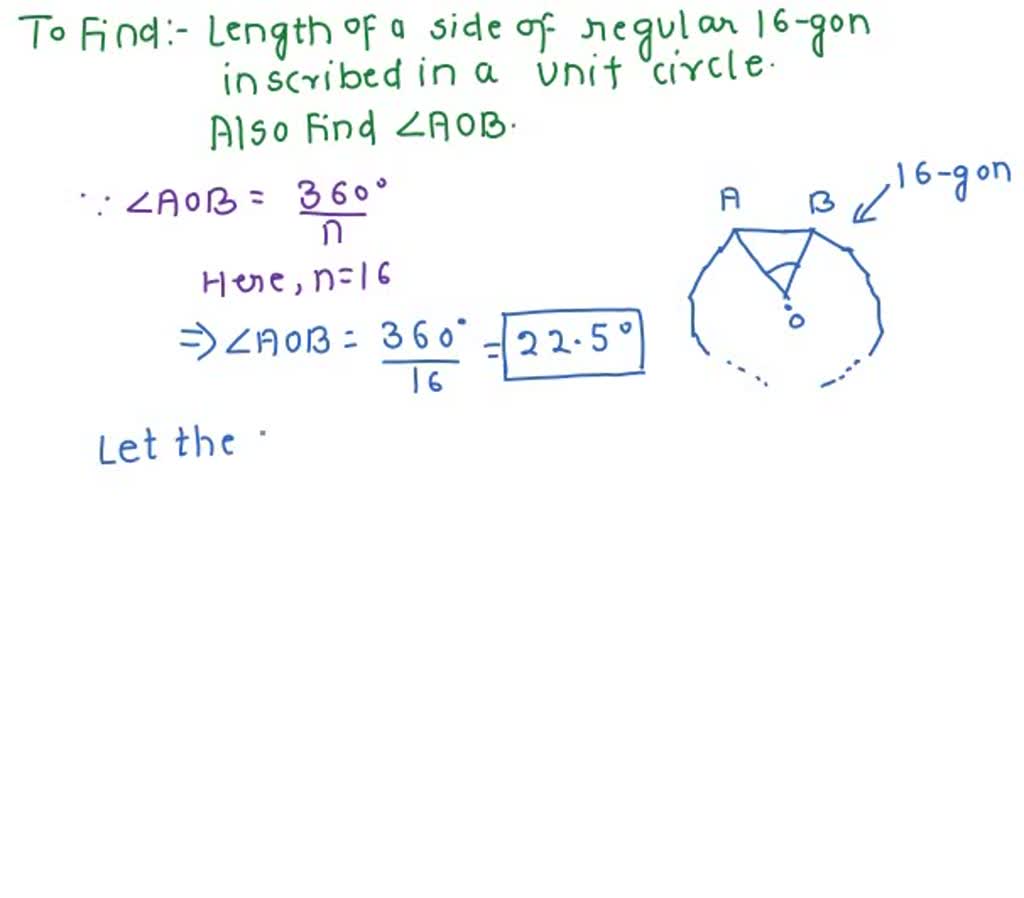 To Find:- Length of a side of regular 16-gon
inscribed in a unit circle.
Also Find ∠AOB.
∵ ∠AOB = 360°/n
Here, n=16
⇒ ∠AOB = 360°/16 = 22.5°
Let the
16-gon
A B
O